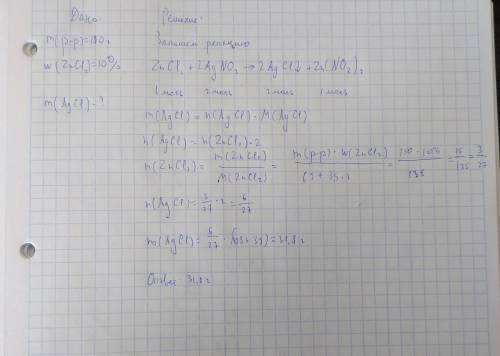 Дано:
m(р-р)=150г
w(ZnCl₂)=10%
m(AgCl)-?
Решение:
Запишем реакцию
ZnCl₂ + 2AgNO₃ → 2AgCl↓ + Zn(NO₃)₂
1 моль 2 моль 2 моль 1 моль
m(AgCl) = n(AgCl) · M(AgCl)
n(AgCl) = n(ZnCl₂) · 2
n(ZnCl₂) = m(ZnCl₂) / M(ZnCl₂) = m(р-р) · w(ZnCl₂) / 65 + 35 · 2 = = 15 / 135 = 3 / 27
n(AgCl) = 3/27 · 2 = 6/27
m(AgCl) = 6/27 · = 31,8 г
Ответ 31,8 г